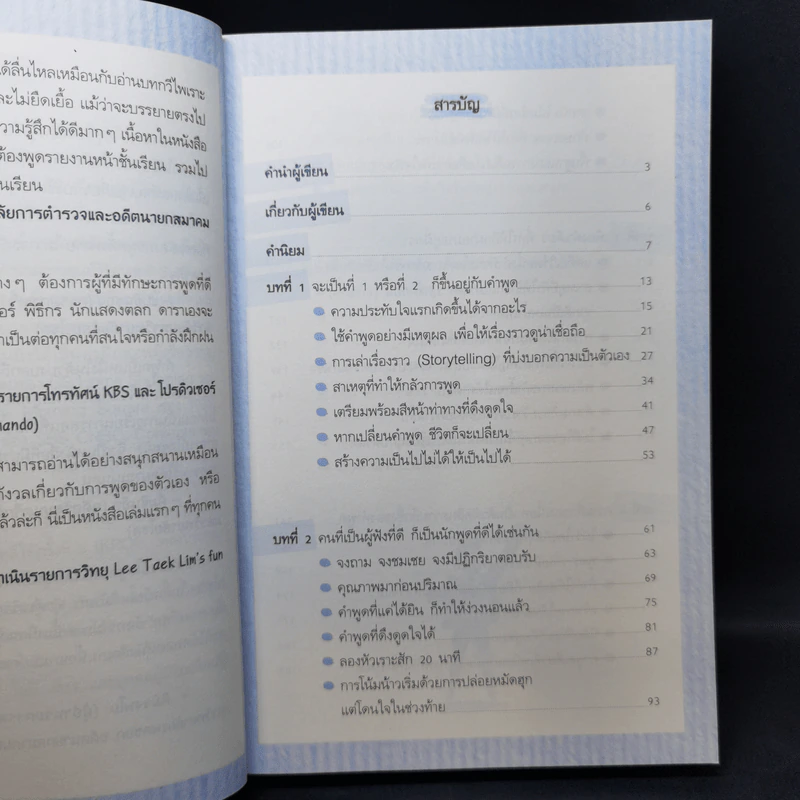 ได้ลื่นไหลเหมือนกับอ่านบทกวีไพเราะ
ละไม่ยืดเยื้อ แม้ว่าจะบรรยายตรงไป
วามรู้สึกได้ดีมากๆ เนื้อหาในหนังสือ
ต้องพูดรายงานหน้าชั้นเรียน รวมไป
นเรียน
ลัยการตำรวจและอดีตนายกสมาคม
างๆ ต้องการผู้ที่มีทักษะการพูดที่ดี
อร์ พิธีกร นักแสดงตลก ดาราเองจะ
เป็นต่อทุกคนที่สนใจหรือกำลังฝึกฝน
รายการโทรทัศน์ KBS และโปรดิวเซอร์
mando)
สามารถอ่านได้อย่างสนุกสนานเหมือน
กังวลเกี่ยวกับการพูดของตัวเอง หรือ
แล้วล่ะก็ นี่เป็นหนังสือเล่มแรกๆ ที่ทุกคน
ำเนินรายการวิทยุ Lee Taek Lim's fun
สารบัญ
คำนำผู้เขียน 3
เกี่ยวกับผู้เขียน 6
คำนิยม 7
บทที่ 1 จะเป็นที่ 1 หรือที่ 2 ก็ขึ้นอยู่กับคำพูด 13
ความประทับใจแรกเกิดขึ้นได้จากอะไร 15
ใช้คำพูดอย่างมีเหตุผล เพื่อให้เรื่องราวดูน่าเชื่อถือ 21
การเล่าเรื่องราว (Storytelling) ที่บ่งบอกความเป็นตัวเอง 27
สาเหตุที่ทำให้กลัวการพูด 34
เตรียมพร้อมสีหน้าท่าทางที่ดึงดูดใจ 41
หากเปลี่ยนคำพูด ชีวิตก็จะเปลี่ยน 47
สร้างความเป็นไปไม่ได้ให้เป็นไปได้ 53
บทที่ 2 คนที่เป็นผู้ฟังที่ดี ก็เป็นนักพูดที่ดีได้เช่นกัน 61
จงถาม จงชมเชย จงมีปฏิกริยาตอบรับ 63
คุณภาพมาก่อนปริมาณ 69
คำพูดที่แค่ได้ยิน ก็ทำให้ง่วงนอนแล้ว 75
คำพูดที่ดึงดูดใจได้ 81
ลองหัวเราะสัก 20 นาที 87
การโน้มน้าวเริ่มด้วยการปล่อยหมัดฮุก
แต่โดนใจในช่วงท้าย 93